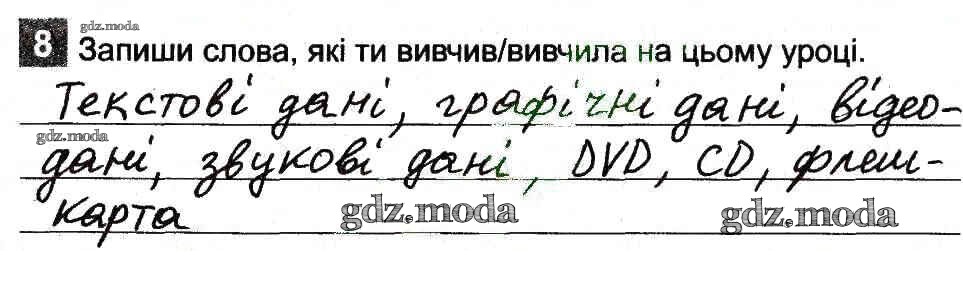 gdz.moda
8 Запиши слова, які ти вивчив/вивчила на цьому уроці.
Текстові дані, графічні дані, відео-
gdz.moda
дані, звукові дані, DVD, CD, флеш-
карта
gdz.moda gdz.moda